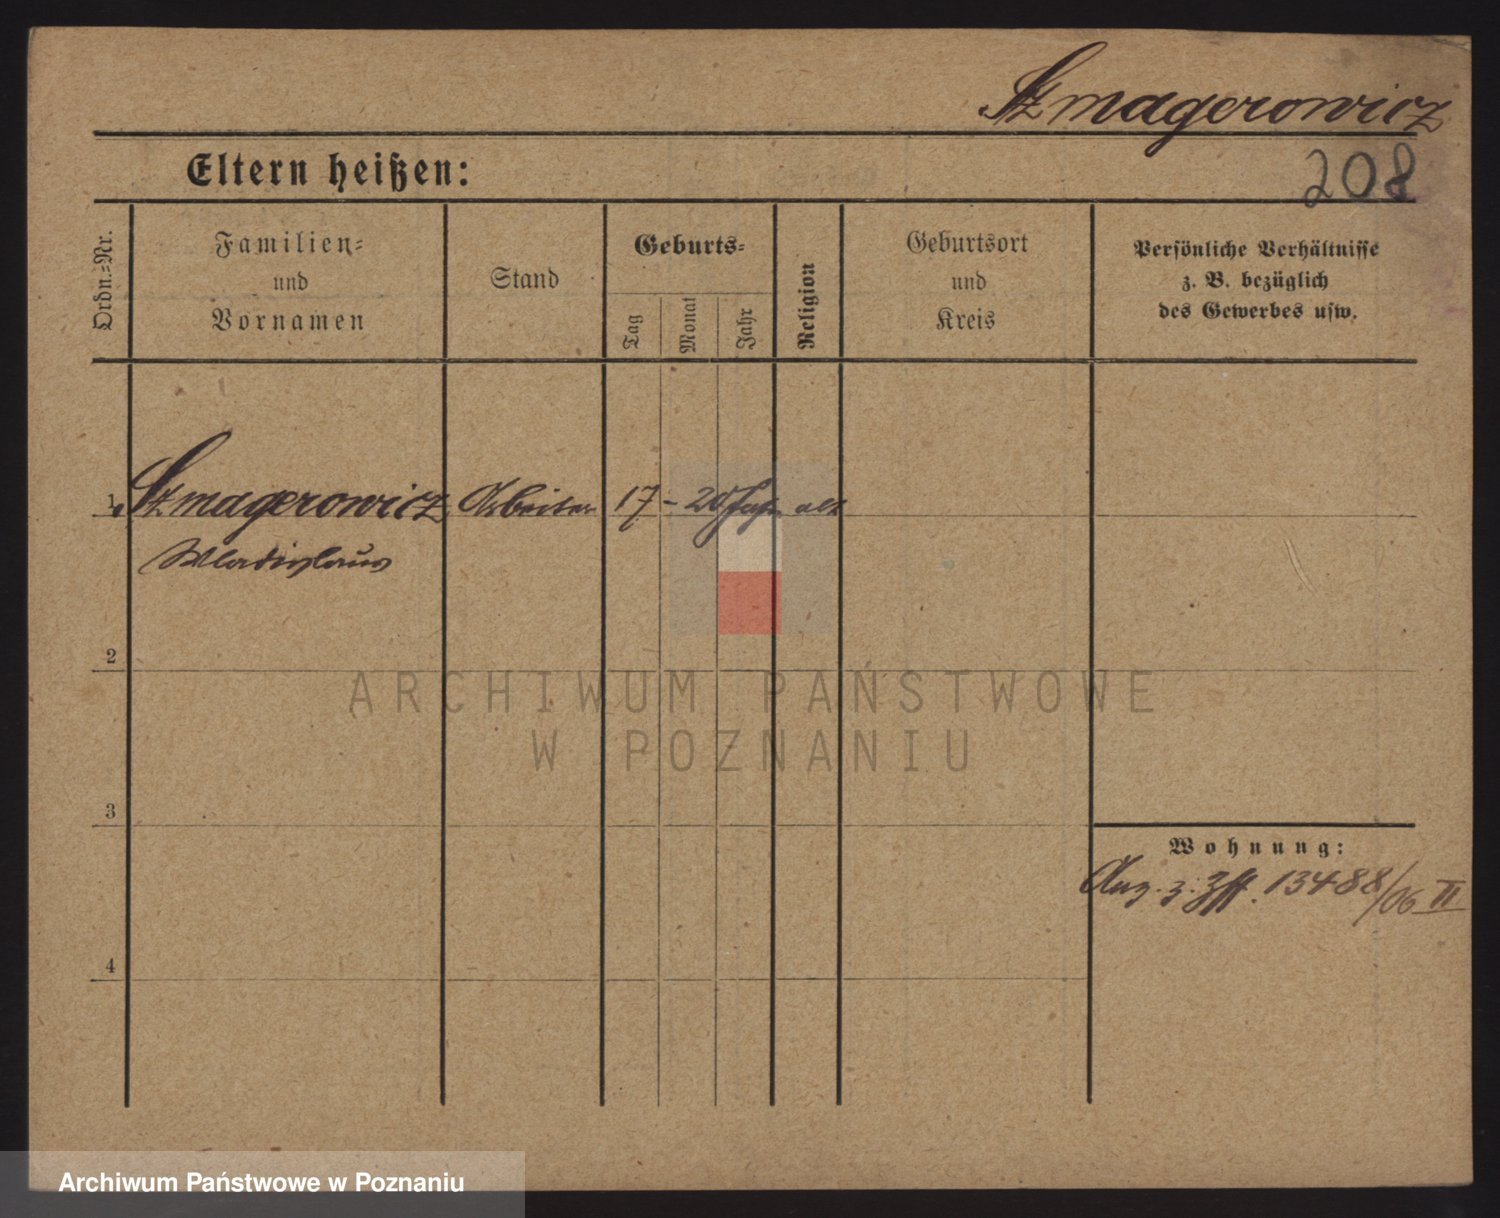 Szmagerowicz
Eltern heißen:
208
Ordn.=Nr.
Familien=
und
Vornamen
Stand
Geburts=
Tag
Monat
Jahr
Religion
Geburtsort
und
Kreis
Persönliche Verhältnisse
z. B. bezüglich
des Gewerbes usw.
1
Szmagerowicz Arbeiter 17 - 20 Jahr alt
Wladislaus
2
ARCHIWUM PAŃSTWOWE
W POZNANIU
3
Wohnung:
Anz. z. 13488/06 II
4
Archiwum Państwowe w Poznaniu